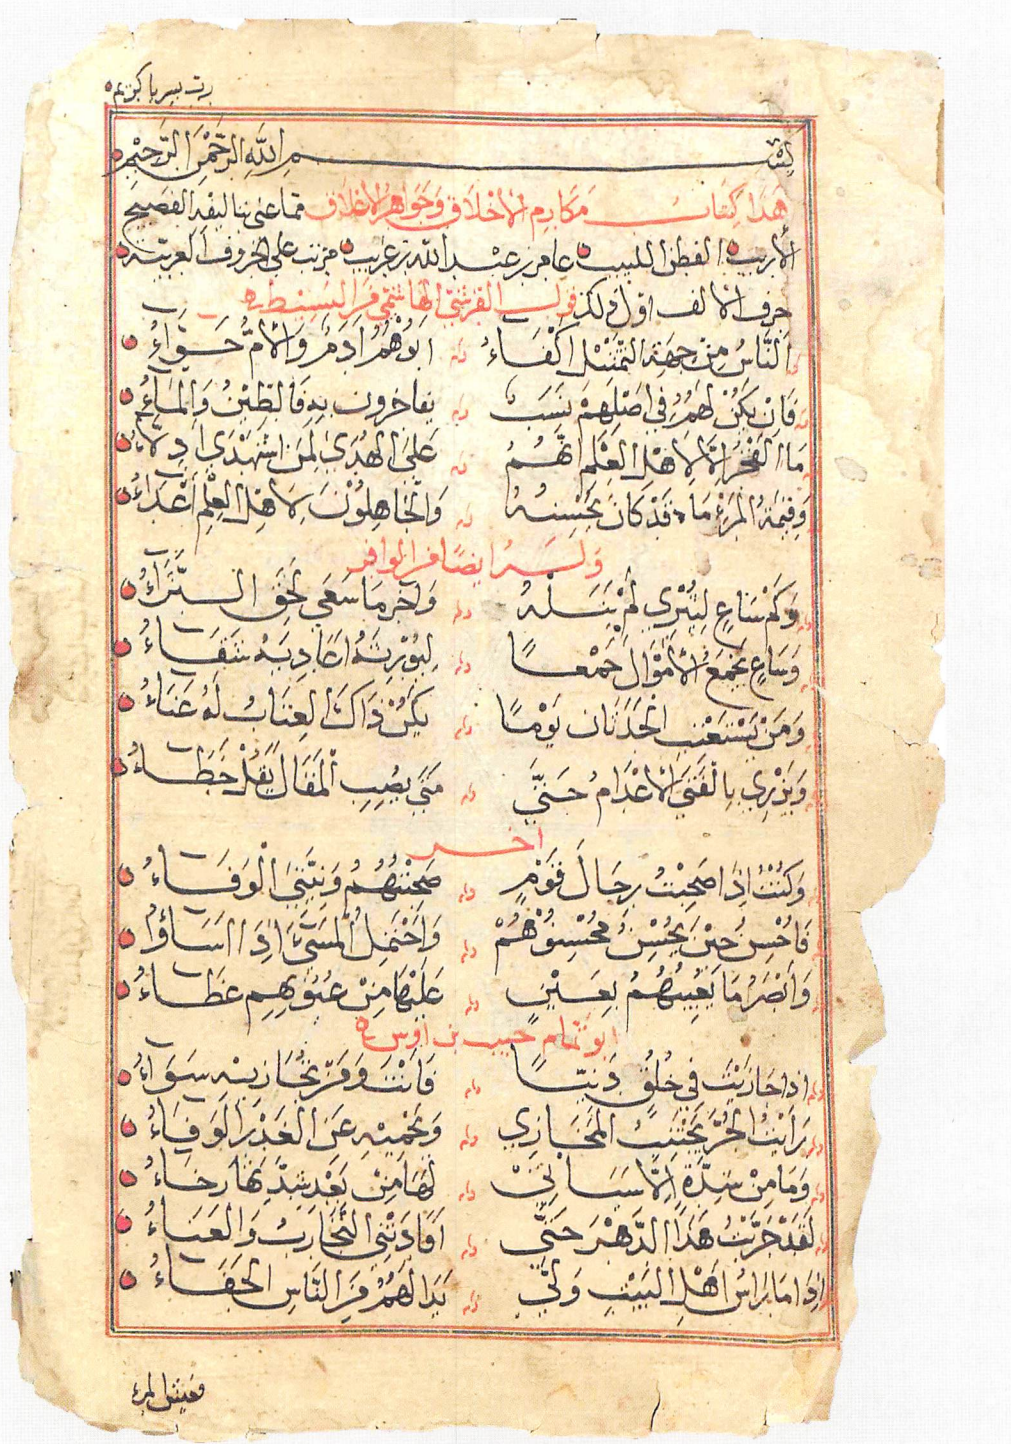 رب يسر يا كريم
بسم اللَّهِ الرَّحْمٰنِ الرَّحِيْمِ
هَذَا كِتَابُ مَكَارِم الأخْلَاق وَجَوَاهر الأخْلَاق مما عنى بتاليفه الفصيح
الأريب الفطن اللبيب عامر بن عبد الله بن غريب مرتب على الحروف العربيّة
حرف الألف اوّل ذلك قول القرشي الهاشمي من البسيط
النَّاسُ مِنْ جِهَةِ التَّمْثِيْلِ أَكْفَاءُ ابُوْهُمُ ادَمٌ وَالأمُّ حَوَّاءُ
فَانْ يَكُنْ لَهُمُ فِي اصْلِهِمْ نَسَبٌ يفاخرون بهِ فَالطِّيْنُ وَالمَاءُ
مَا الفَخْرُ الَّا لِاهْلِ العِلْمِ انَّهُمُ عَلَى الهُدَى لِمَنِ اسْتَهْدَى ادِلَّاءُ
وَقِيْمَةُ المَرْءِ مَا قَدْ كَانَ يُحْسِنُهُ وَالجَاهِلُوْنَ لِاهْلِ العِلْمِ أَعْدَاءُ
وَلَهُ ايضًا من الوافر
وَكَمْ سَاعٍ لِيُثْرِي لَمْ يَنَلْهُ وَاخَر مَا سَعَى لَحِقَ الثَّرَاءُ
وَسَاعٍ يَجْمَعُ الأمْوَالَ جَمْعًا لِيُوْرِثَهُ اعَادِيَهُ شَقَاءُ
وَمَنْ يَسْتَعْتِب الحَدَثَان يَوْمًا يَكُنْ ذَاكَ العِتَابُ لَهُ عَنَاءُ
وَيَزْرِي بِالْفَتَى الأعْدَامُ حَتَّى مَتَى يُصِبِ الْمَقَالَ يَقُلْ خَطَاءُ
آخر
وَكُنْتُ اذَا صَحِبْتُ رِجَالَ قَوْمٍ صَحِبْتُهُمُ وَنِيَّتِيَ الْوَفَاءُ
فَاُحْسِنُ حِيْنَ يُحْسِنُ مُحْسِنُوْهُمْ وَاحْتَمِلُ المَسَيَّ اِذَا اسَاؤُا
وَابْصُرُ مَا يَعِيْبُهُمُ بِعَيْنٍ عَلَيْهَا مِنْ عُيُوْبِهِم غِطَاءُ
ابو تمام حبيب بن اوس
اذا جَارَيْتَ فِي خُلُقٍ دَنِيًّا فَانْتَ وَمَنْ تُجَارِيْهِ سَوَاءُ
رَايْتُ الحُرَّ يَجْتَنِبُ المَخَازِي وَيَحْمِيْهِ عَنِ الغَدْرِ الوَفَاءُ
وَمَا مِنْ شِدَّةٍ اِلَّا سَيَاتِيْ لَهَا مِنْ بَعْدِ شِدَّتِهَا رخَاءُ
لَقَدْ جَرَّبْتُ هَذَا الدَّهْرَ حَتَّى افَادَتْنِي التَّجَارِبُ وَالعَنَاءُ
اِذَا مَا رَاسُ اهْلِ البَيْتِ وَلَّي بَدَا لَهُمُ مِنَ النَّاسِ الجَفَاءُ
يعيش المرء